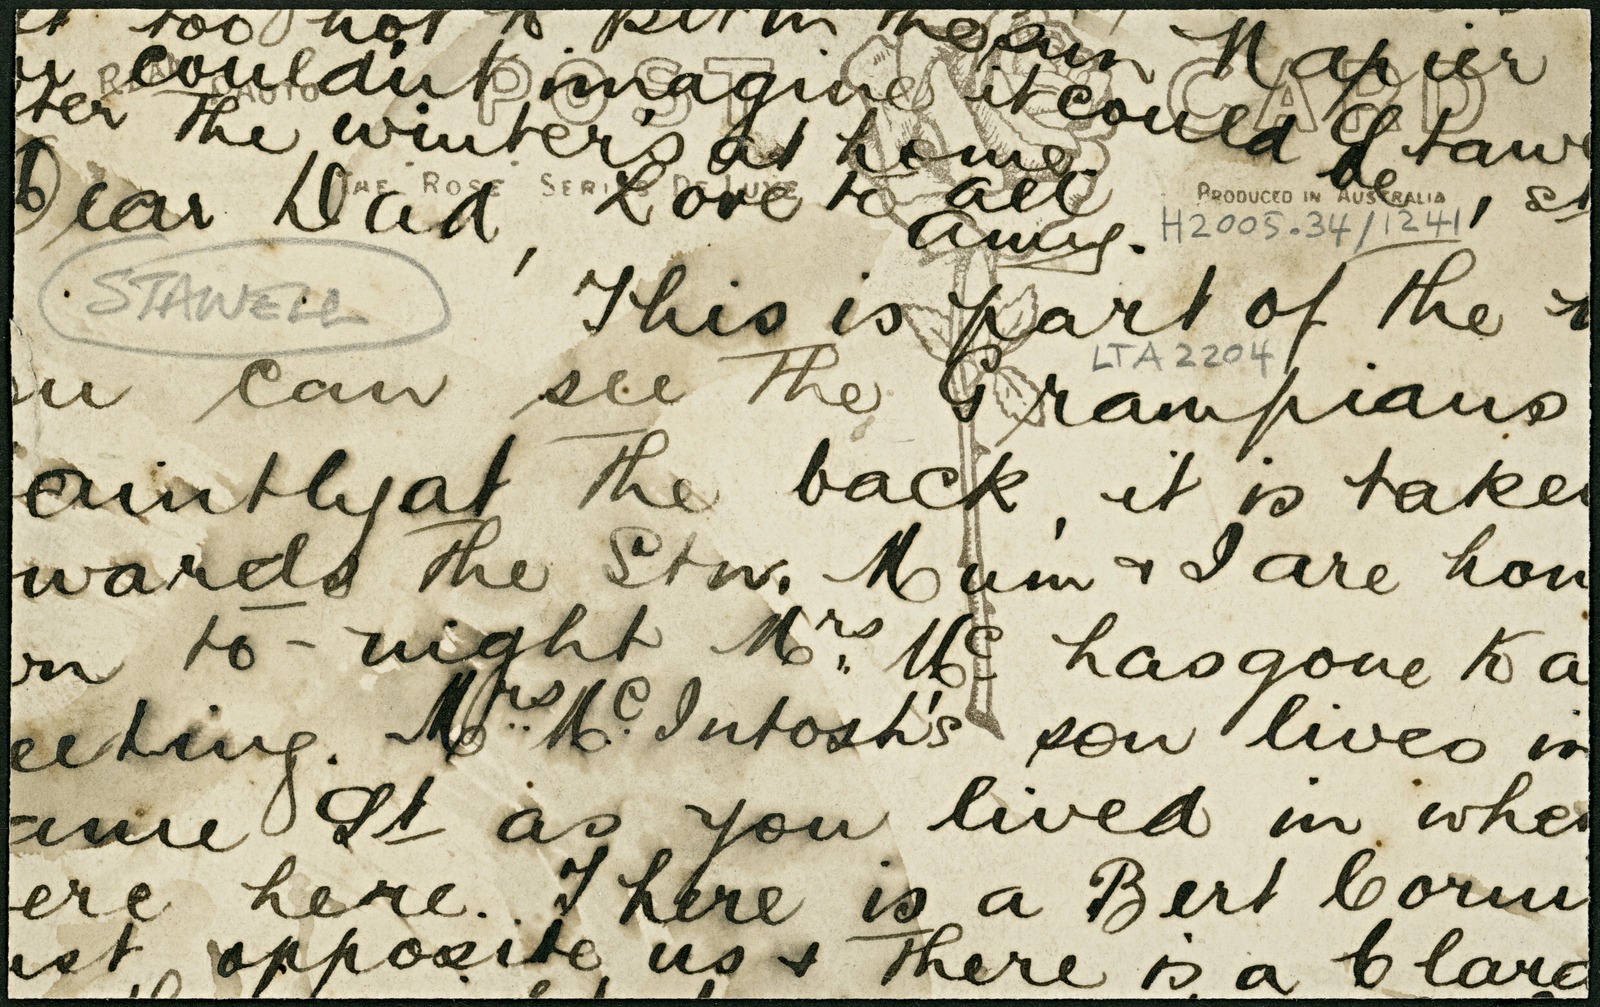 too hot to sit in the sun Napier
couldn't imagine it could
ter the winter's at home be Stawe
Dear Dad, Love to all
Amy.
REAL PHOTO
POST CARD
THE ROSE SERIES DE LUXE
PRODUCED IN AUSTRALIA
H2005.34/1241
STAWELL
This is part of the
LTA 2204
ou can see the Grampians
aintly at the back, it is taken
wards the Stn. Mum & I are hom
to-night Mrs. Mc has gone to a
eeting. Mrs. McIntosh's son lives in
ame St as you lived in when
ere here. There is a Bert Corm
ust opposite us & there is a Clare